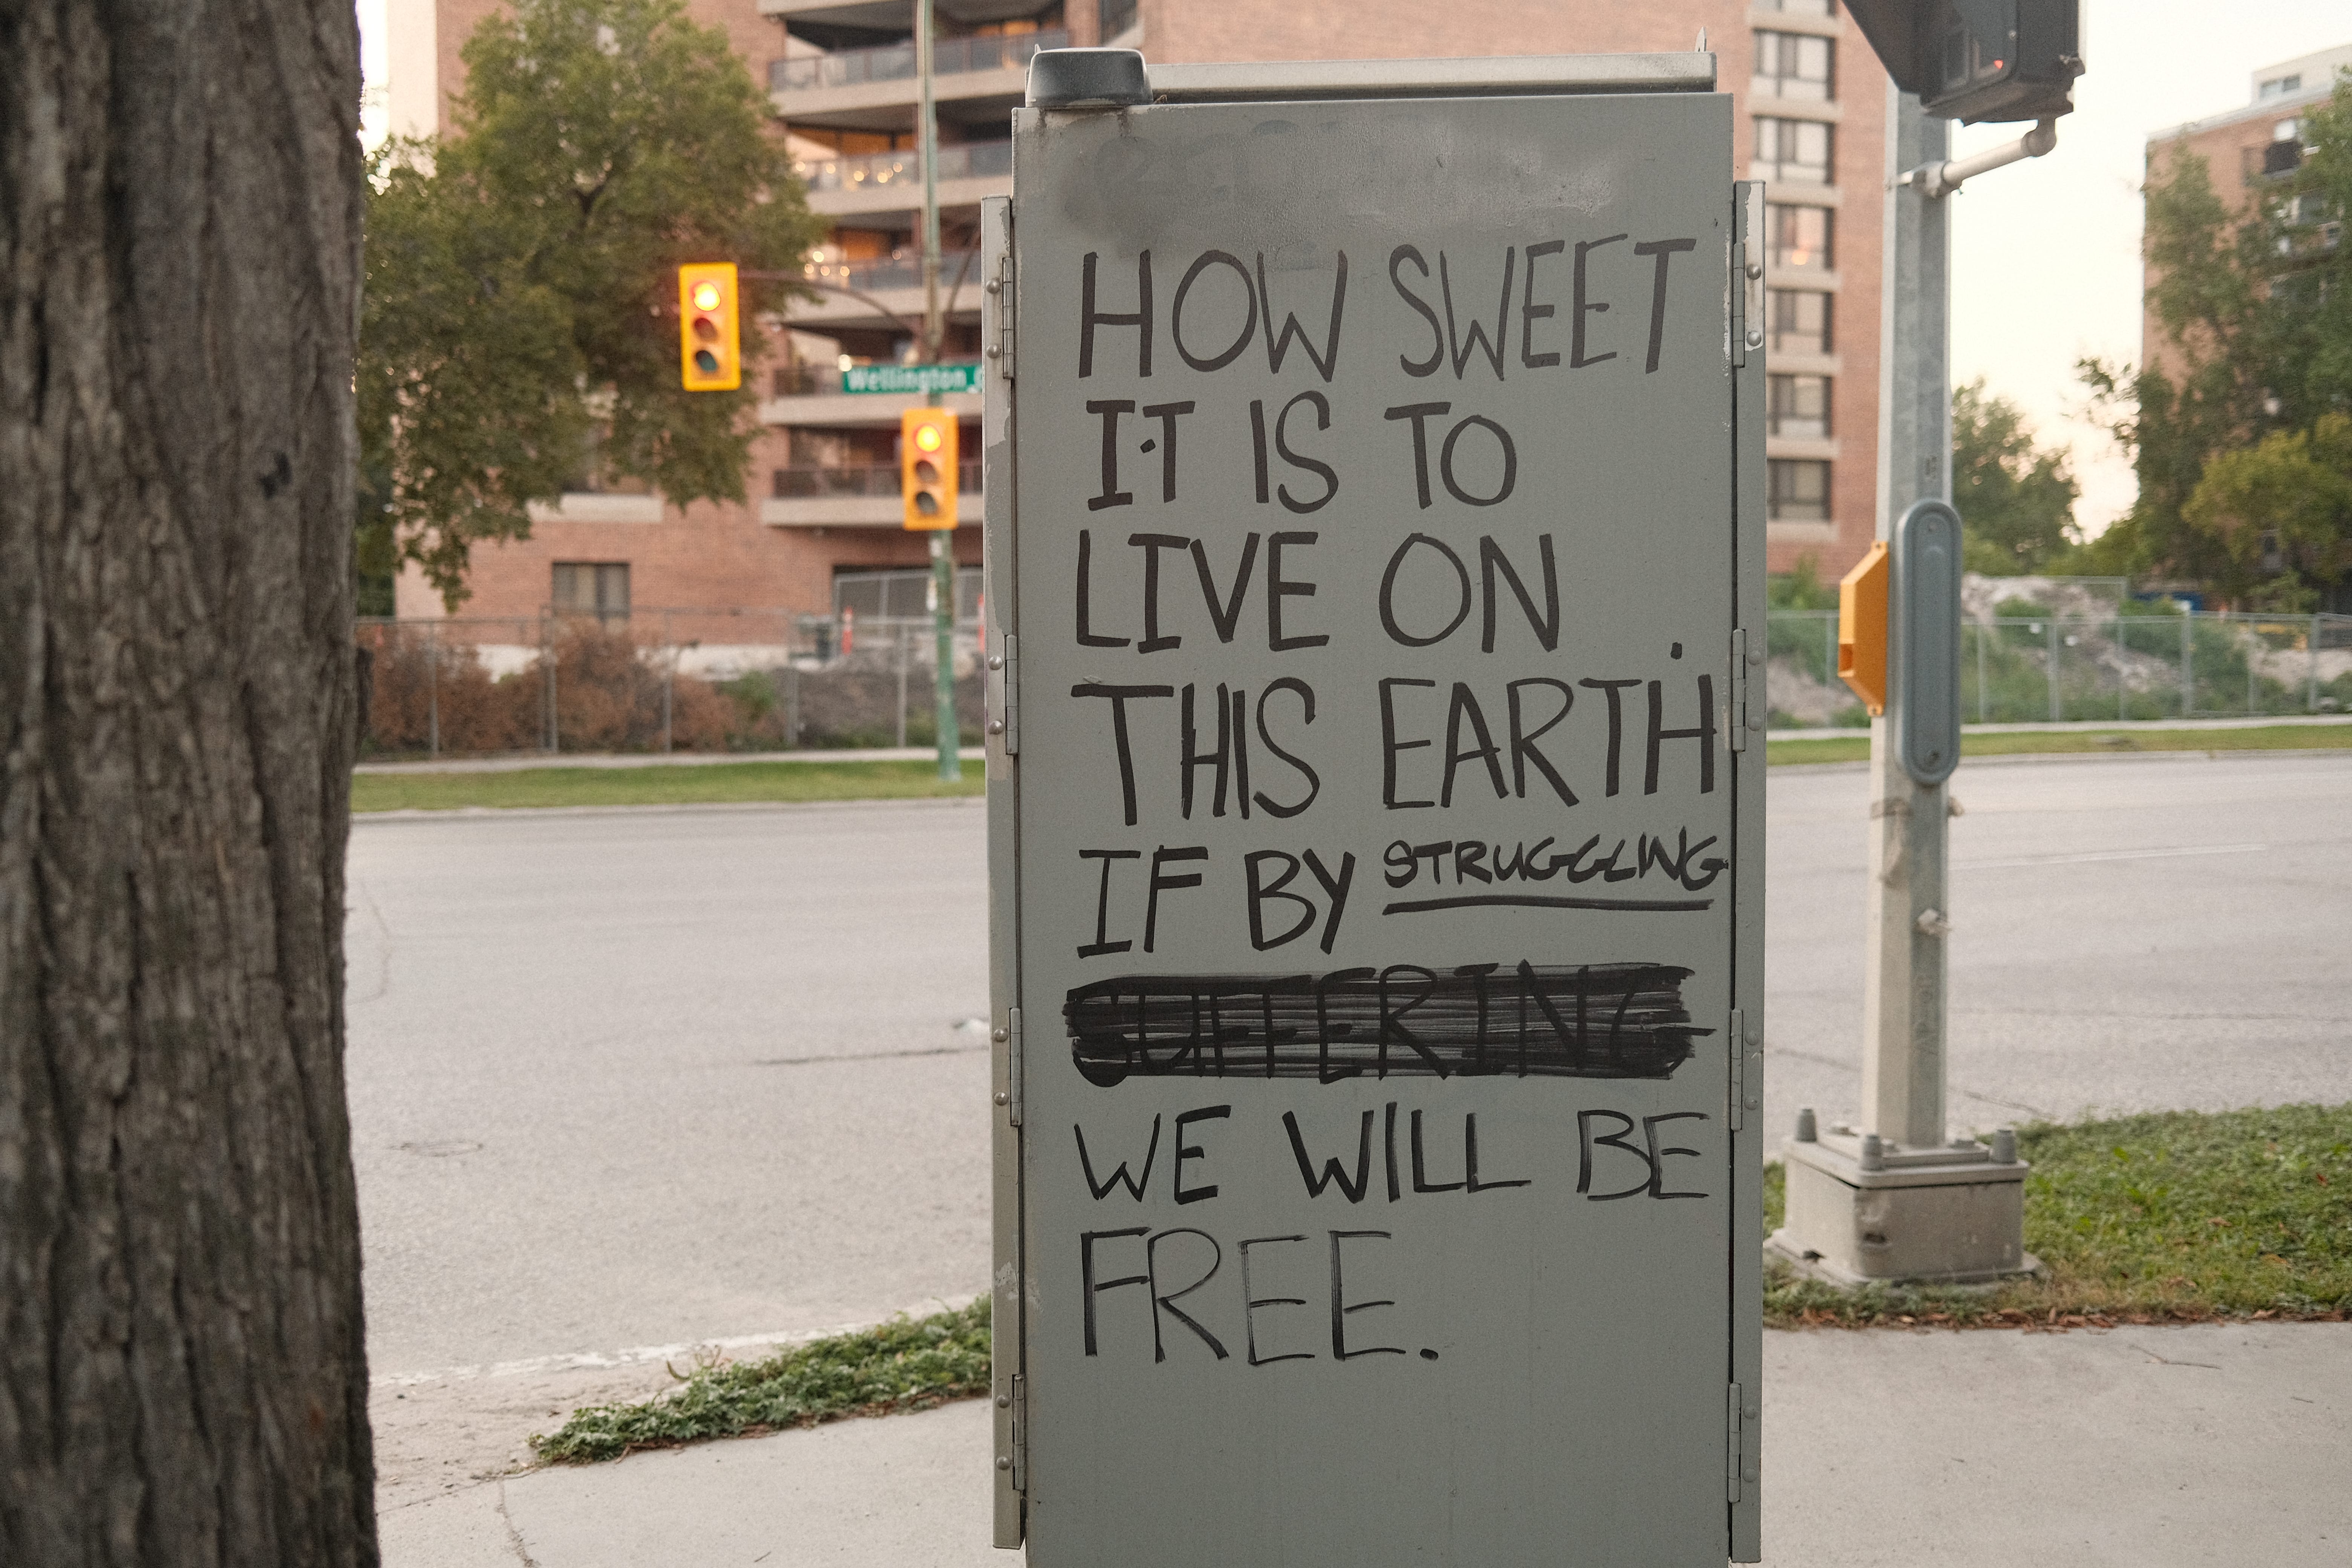 Wellington
HOW SWEET
IT IS TO
LIVE ON
THIS EARTH
IF BY STRUGGLING
SUFFERING
WE WILL BE
FREE.